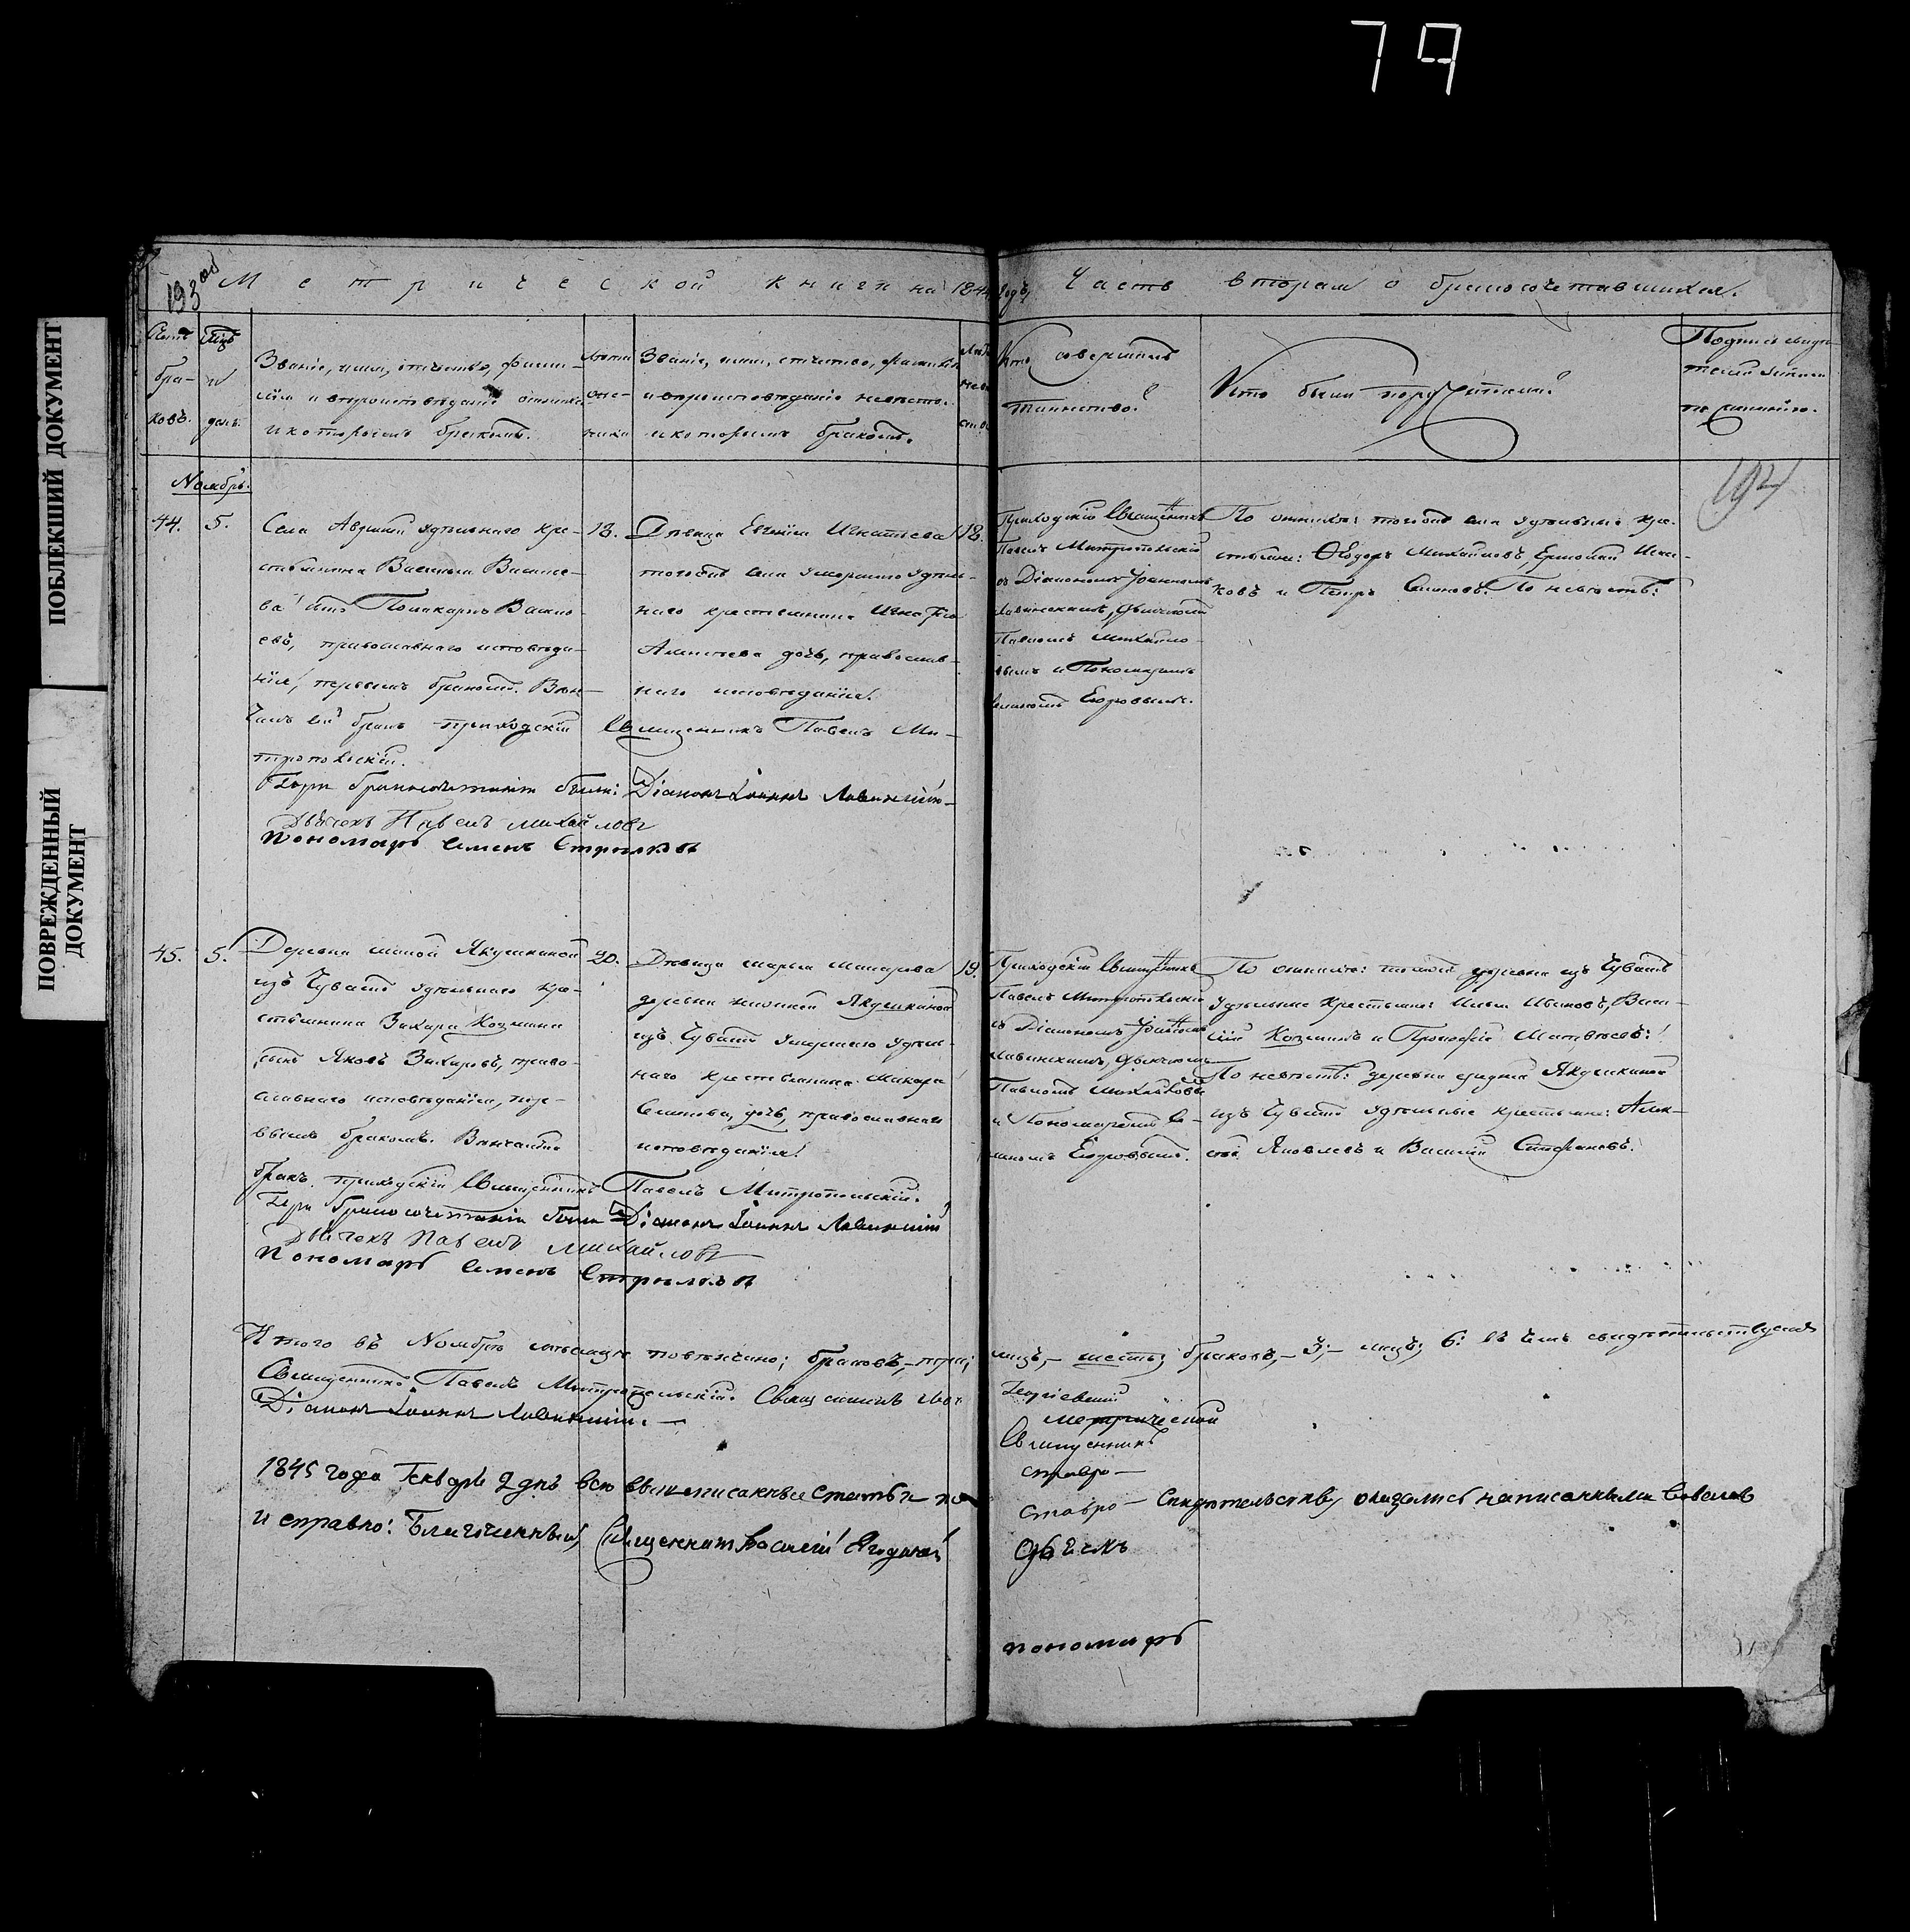 79
ПОБЛЕКШИЙ ДОКУМЕНТ
ПОВРЕЖДЕННЫЙ
ДОКУМЕНТ
193 об
Метрической книги на 1844
годъ,
Часть вторая о бракосочетавшихся.
Счетъ
бра-
ковъ.
Мцъ
и
день.
Званіе, имя, отчество, фами-
лія и вѣроисповѣданіе жениха
и которымъ бракомъ.
Лѣта
же-
ниха
Званіе, имя, отчество, фамилія
и вѣроисповѣданіе невѣсты.
и которымъ бракомъ.
Лѣта
Кто совершалъ
таинство?
Кто были поручители?
Подписи свидѣ-
телей записи
по желанію.
194
Ноябрь.
44.
5.
Села удѣльнаго кре-
стьянина Василья Василье-
ва Поликарпъ Василь-
евъ, православнаго исповѣда-
нія, первымъ бракомъ. Вѣн-
чалъ бракъ приходскій Священникъ Павелъ Ми-
тропольскій.
При бракосочетаніи были: Діаконъ Іоаннъ
Дьячекъ Павелъ Михайловъ
Пономарь Семенъ Стрѣлковъ
18.
Дѣвица Евгенія Игнатьева
тогожъ села умершаго удѣль-
наго крестьянина Игнатія
дочь, православ-
наго исповѣданія.
18.
Приходскій Священникъ
Павелъ Митропольскій
съ Діакономъ Іоанномъ
дьячкомъ
Павломъ Михайло-
вымъ и Пономаремъ
Егоровымъ.
По женихѣ: тогожъ села удѣльные кре-
стьяне: Ѳедоръ Михайловъ, Ермолай Иса-
ковъ и Петръ Семеновъ. По невѣстѣ:
45.
5.
Деревни малой Якушкиной
изъ Чувашъ удѣльнаго кре-
стьянина Захара Козмина
сынъ Яковъ Захаровъ, право-
славнаго исповѣданія, пер-
вымъ бракомъ. Вѣнчалъ
бракъ приходскій Священникъ Павелъ Митропольскій.
При бракосочетаніи были Діаконъ Іоаннъ
Дьячекъ Павелъ Михайловъ
Пономарь Семенъ Стрѣлковъ
20.
Дѣвица Марья Макарова
деревни Якушкиной
изъ Чувашъ умершаго удѣль-
наго крестьянина Макара
Семенова дочь, православнаго
исповѣданія.
19.
Приходскій Священникъ
Павелъ Митропольскій
съ Діакономъ Іоанномъ
дьячкомъ
Павломъ Михайловы
и Пономаремъ Се-
меномъ Егоровымъ.
По женихѣ: тойже деревни изъ Чувашъ
удѣльные крестьяне: Илья Ивановъ, Васи-
лій Козминъ и Прокофій Матвѣевъ.
По невѣстѣ: деревни средней Якушкиной
изъ Чувашъ удѣльные крестьяне: Алек-
сѣй Яковлевъ и Василій Стефановъ.
Итого въ Ноябрѣ мѣсяцѣ повѣнчано; браковъ,- три;
лицъ,- шесть; браковъ,- 3;- лицъ; 6: въ чемъ свидѣтельствуемъ
Священникъ Павелъ Митропольскій. Священникъ
Діаконъ Іоаннъ
Георгіевскій
метрической
Священникъ
ставро-
1845 года Генваря 2 дня всѣ вышеписанныя статьи по
ставро- Свидѣтельству оказались написанными
и справно: Благочинный Священникъ Василій
Пономарь